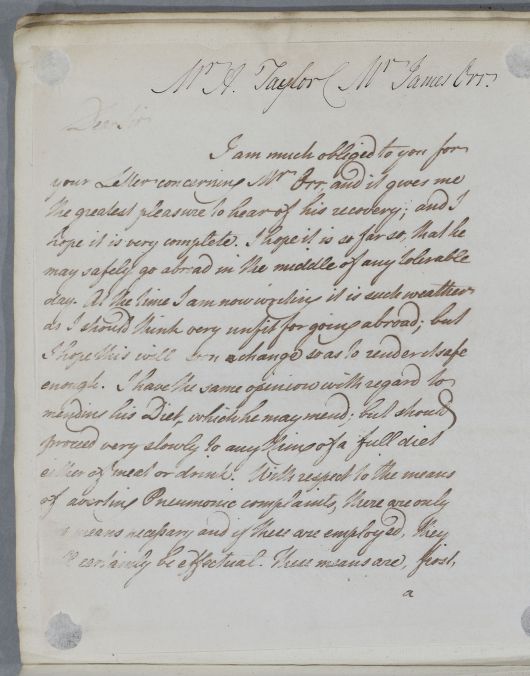 Mr A. Taylor ( Mr James Orr.
Dear Sir
I am much obliged to you for
your Letter concerning Mr Orr, and it gives me
the greatest pleasure to hear of his recovery; and I
hope it is very complete. I hope it is so far so, that he
may safely go abroad in the middle of any tolerable
day. At the time I am now writing it is such weather
as I should think very unfit for going abroad; but
I hope this will soon change so as to render it safe
enough. I have the same opinion with regard to
mending his Diet, which he may mend; but should
proceed very slowly to any thing of a full diet
either of meat or drink. With respect to the means
of averting Pneumonic complaints, there are only
means necessary and if these are employed, they
certainly be effectual. These means are, first,
a